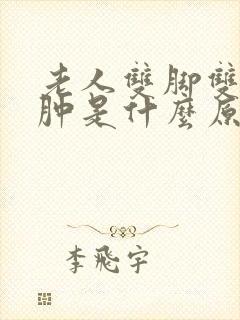 老人雙脚雙
肿是什麼原
李飛宇